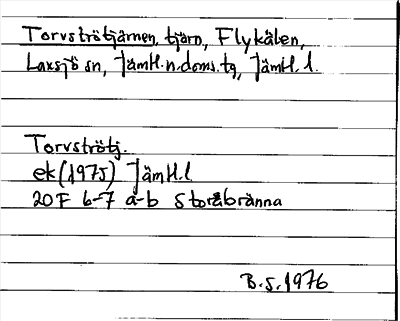 Torvströtjärnen, tjärn, Flykälen,
Laxsjö sn, Jämtl. n. doms. tg, Jämtl. l.
Torvströtj.
ek (1975) Jämtl. l
20F 6-7 a-b Storåbränna
B.S. 1976